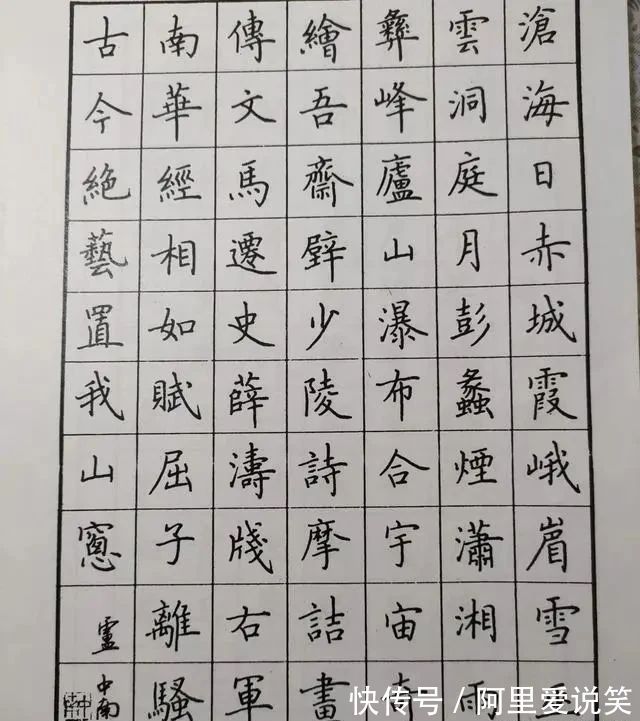 滄海日赤城霞峨眉雪
雲洞庭月彭蠡煙瀟湘雨
彝峰廬山瀑布合宇宙
繪吾齋壁少陵詩摩詰畫
傳文馬遷史薛濤牋右軍
南華經相如賦屈子離騷
古今絕藝置我山窻
盧中南
快传号/阿里爱说笑